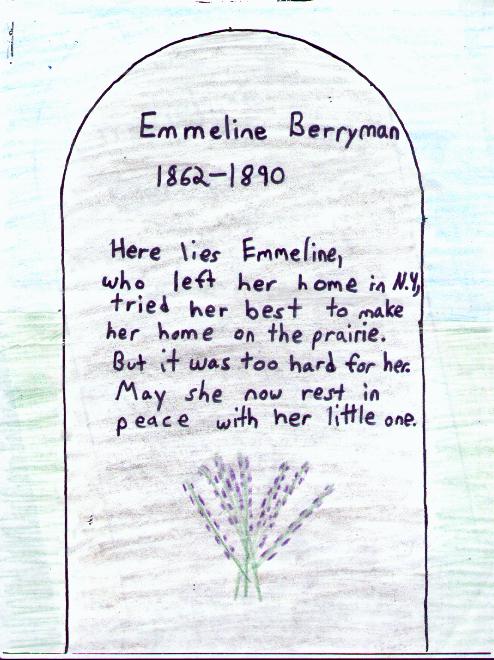 Emmeline Berryman
1862-1890
Here lies Emmeline,
who left her home in N.Y,
tried her best to make
her home on the prairie.
But it was too hard for her.
May she now rest in
peace with her little one.